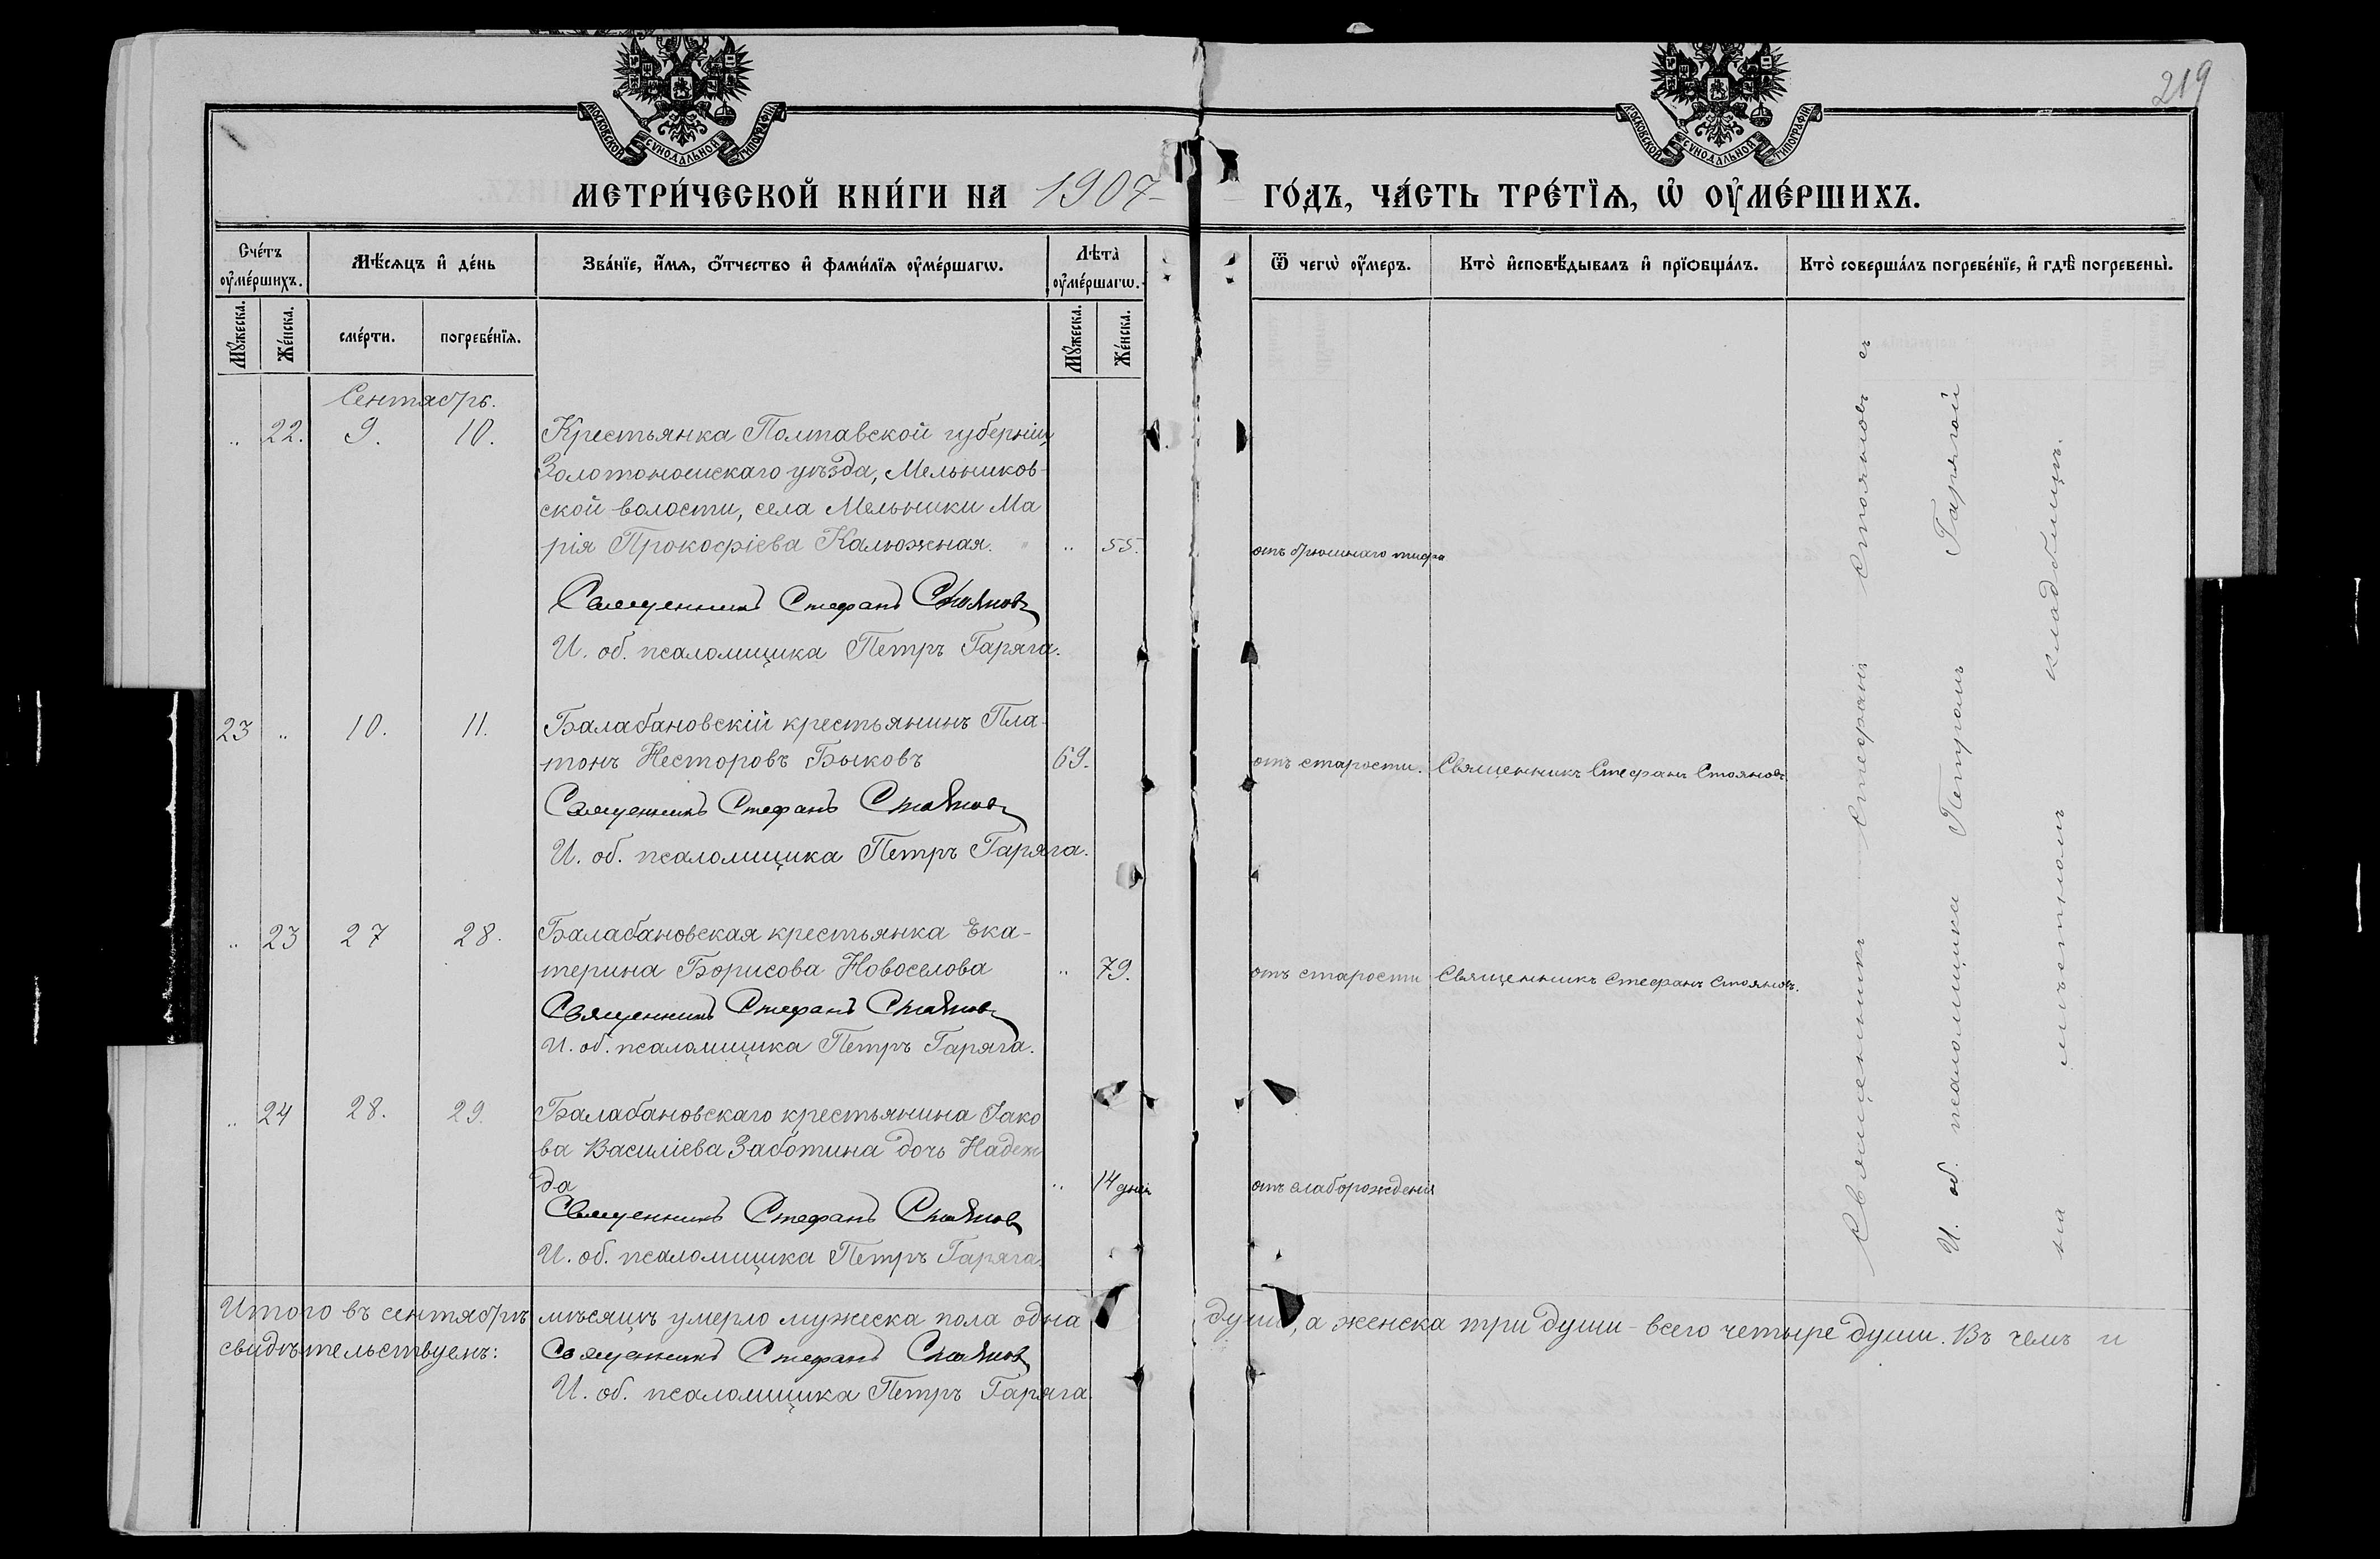 МОСКОВСКОЙ СУНОДАЛЬНОЙ ТИПОГРАФІИ
МОСКОВСКОЙ СУНОДАЛЬНОЙ ТИПОГРАФІИ
219
МЕТРИ́ЧЕСКОЙ КНИ́ГИ НА 1907 ГО́ДЪ, ЧА́СТЬ ТРЕ́ТЇѦ, Ѡ҆ ОУ҆МЕ́РШИХЪ.
Сче́тъ оу҆ме́ршихъ.
Мѣ́сѧцъ и҆ де́нь
Зва́нїе, и҆́мѧ, ѻ҆́тчество и҆ фами́лїѧ оу҆ме́ршагѡ.
Лѣ̀та оу҆ме́ршагѡ.
Ѿ чегѡ̀ оу҆́меръ.
Кто̀ и҆сповѣ́дывалъ и҆ прїѡбща́лъ.
Кто̀ соверша́лъ погребе́нїе, и҆ гдѣ̀ погребены̀.
Мꙋ́жеска.
Же́нска.
сме́рти.
погребе́нїѧ.
Мꙋ́жеска.
Же́нска.
Сентябрь.
„ 22. 9. 10. Крестьянка Полтавской губерніи,
Золотоношскаго уѣзда, Мельников-
ской волости, села Мельники Ма
рія Прокофіева Калюжная. „ 55. отъ брюшнаго тифа
Священникъ Стефанъ Стояновъ
И. об. псаломщика Петръ Гаряга.
23 „ 10. 11. Балабановскій крестьянинъ Пла-
тонъ Несторовъ Быковъ 69. отъ старости. Священникъ Стефанъ Стояновъ
Священникъ Стефанъ Стояновъ
И. об. псаломщика Петръ Гаряга.
„ 23 27 28. Балабановская крестьянка Ека-
терина Борисова Новоселова „ 79. отъ старости Священникъ Стефанъ Стояновъ.
Священникъ Стефанъ Стояновъ
И. об. псаломщика Петръ Гаряга.
„ 24 28. 29. Балабановскаго крестьянина Іако
ва Василіева Заботина дочь Надеж
да „ 14 дней отъ слаборожденія
Священникъ Стефанъ Стояновъ
И. об. псаломщика Петръ Гаряга.
Священникъ Стефанъ Стояновъ съ
И. об. псаломщика Петромъ Гарягой
на мѣстномъ кладбищѣ.
Итого въ сентябрѣ мѣсяцѣ умерло мужеска пола одна душа, а женска три души - всего четыре души. Въ чемъ и
свидѣтельствуемъ: Священникъ Стефанъ Стояновъ
И. об. псаломщика Петръ Гаряга.